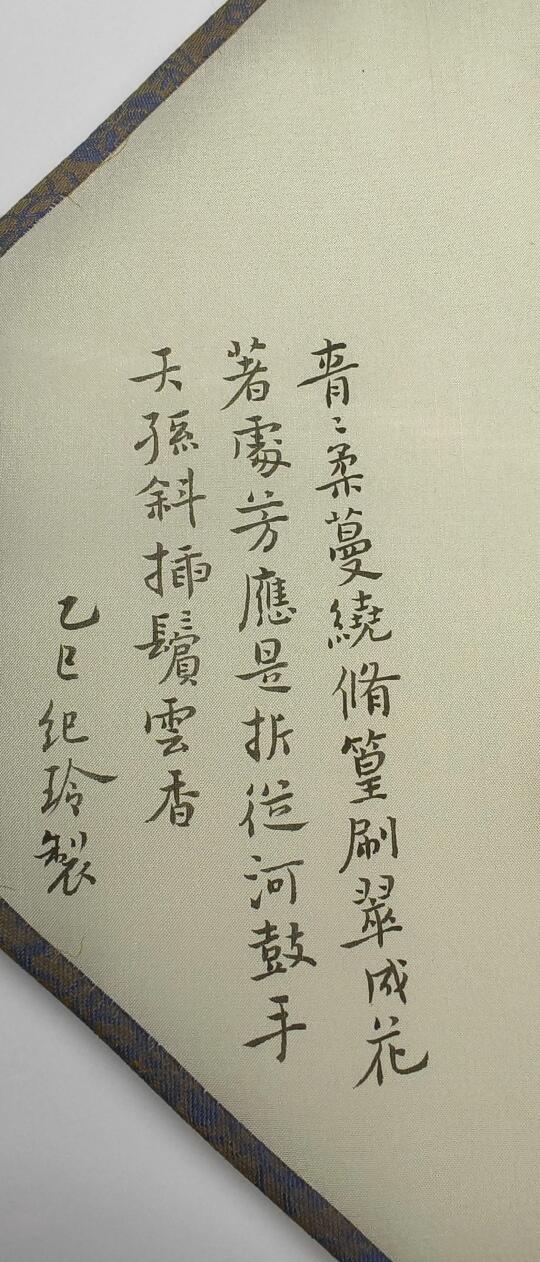 青〻柔蔓繞脩篁刷翠成花
著處芳應是折從河鼓手
天孫斜插鬢雲香
乙巳紀玲製